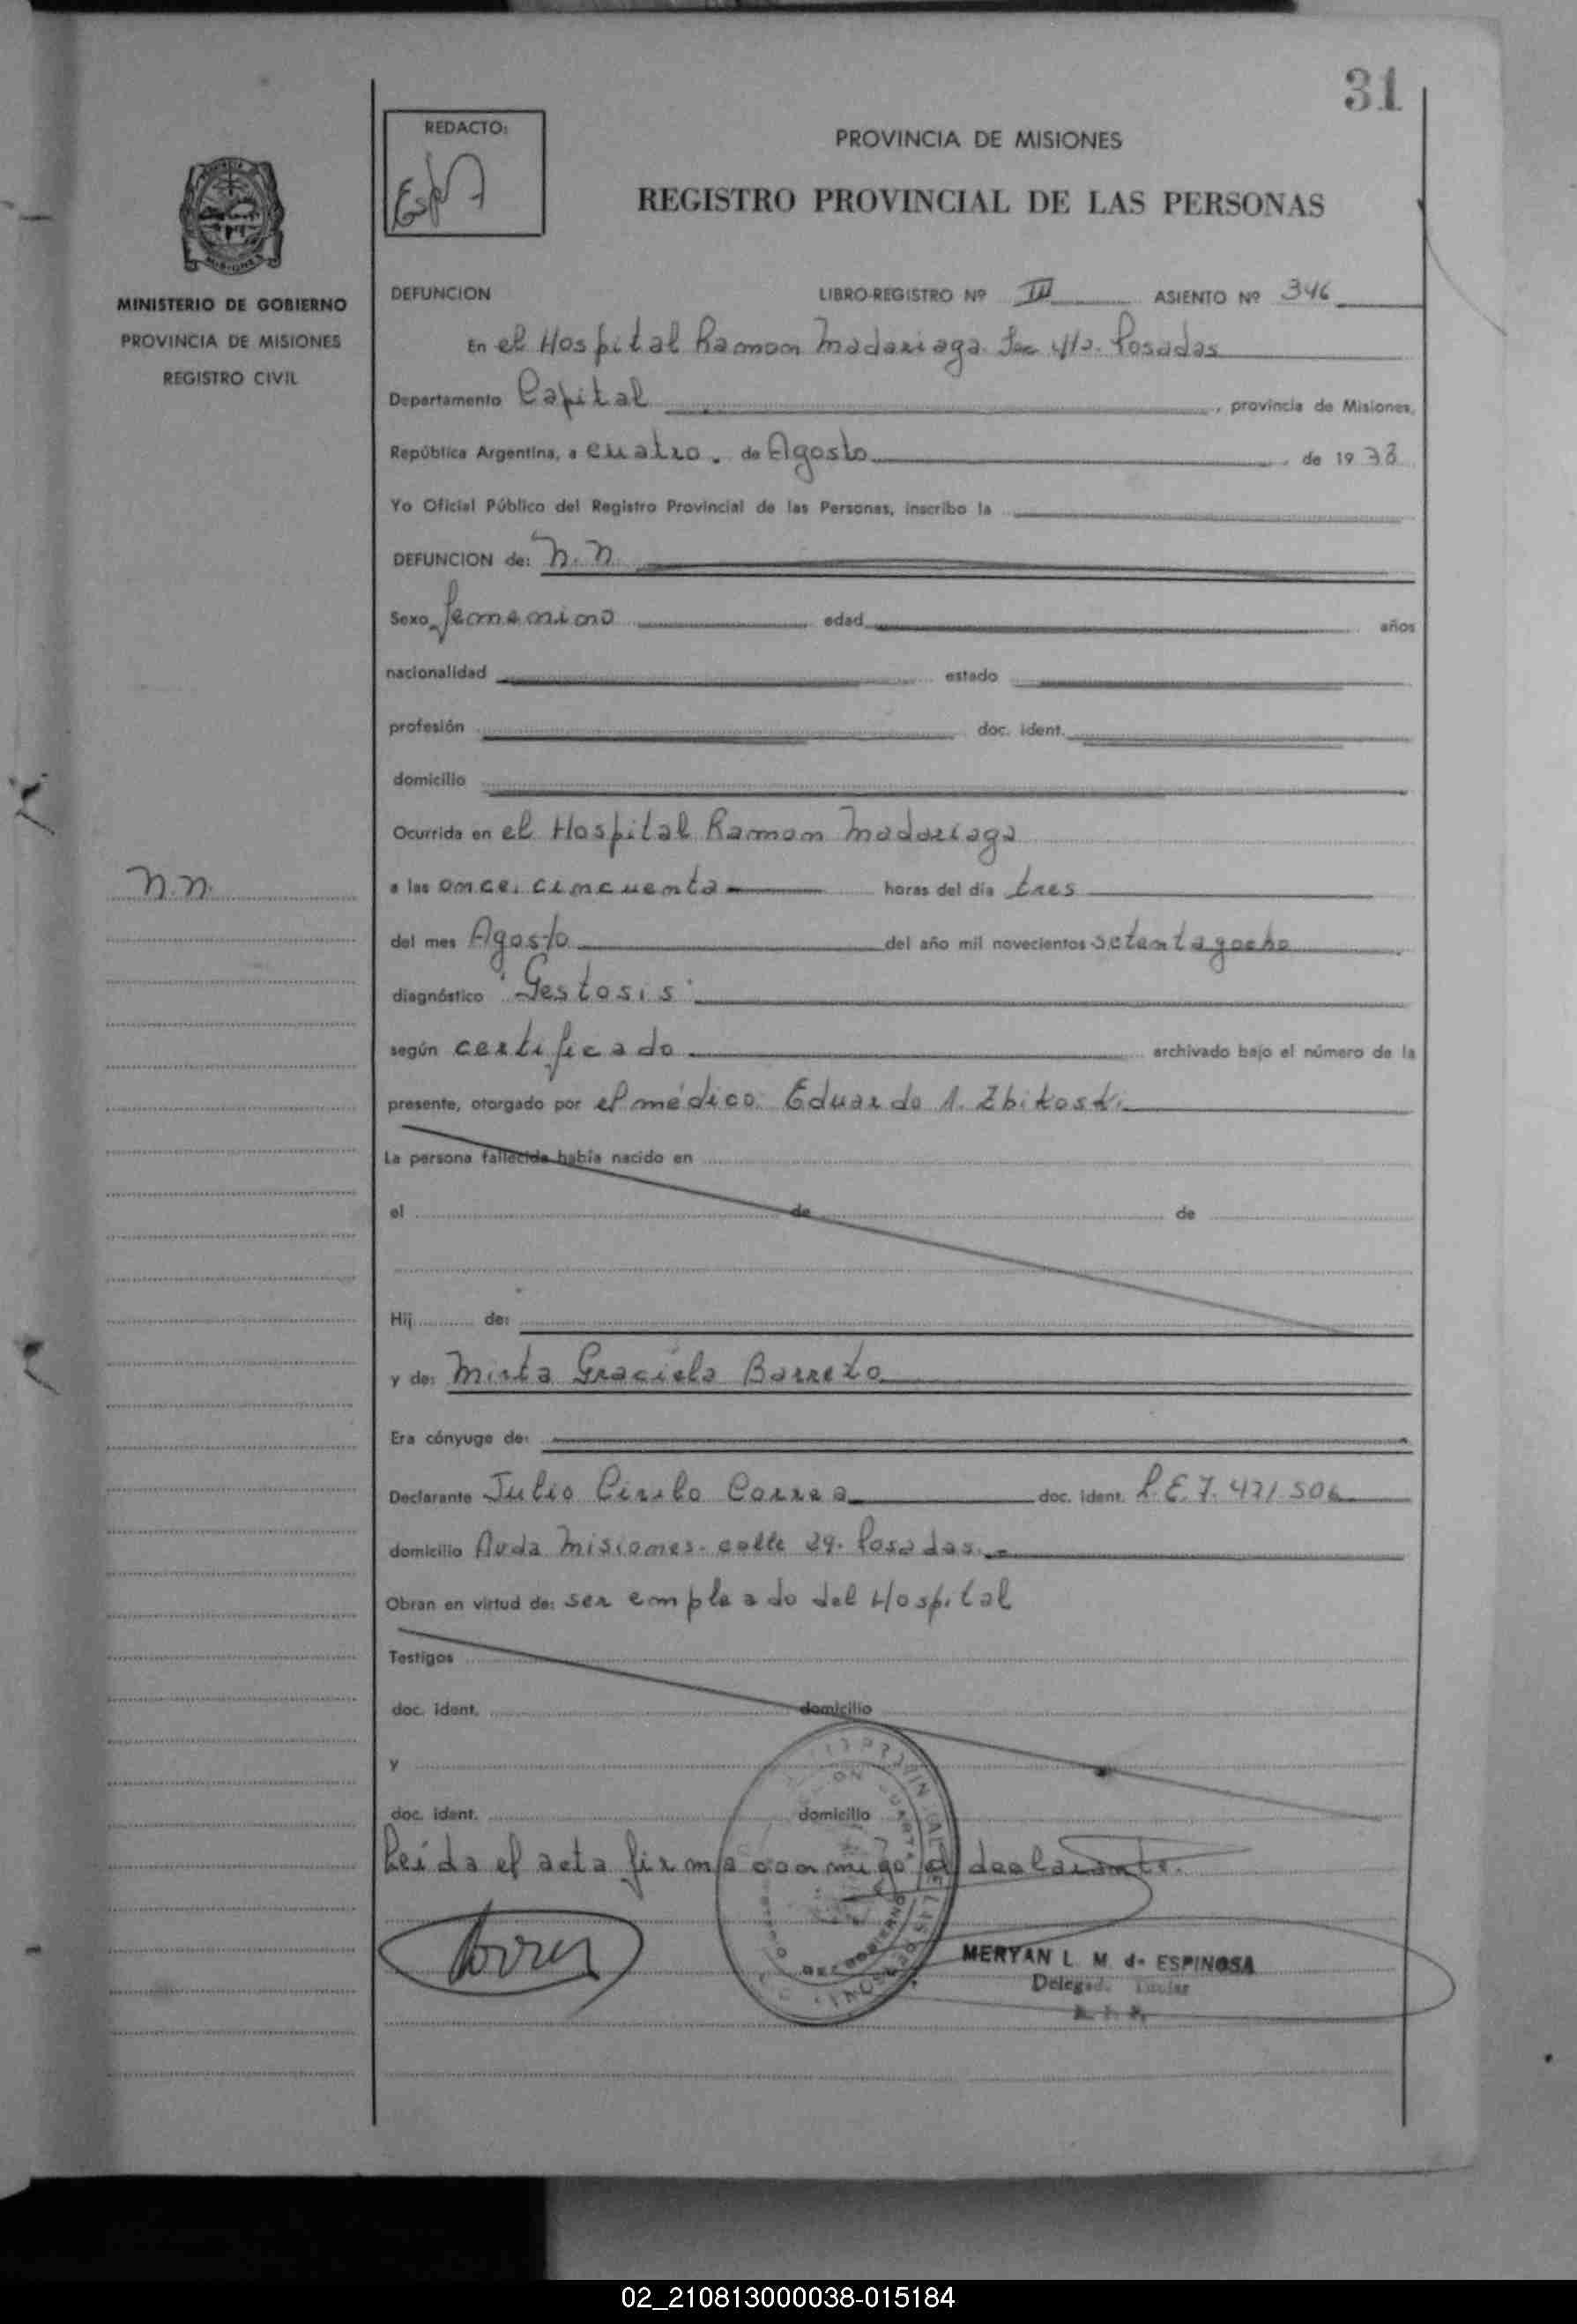 31
REDACTO:
PROVINCIA DE MISIONES
REGISTRO PROVINCIAL DE LAS PERSONAS
MINISTERIO DE GOBIERNO
PROVINCIA DE MISIONES
REGISTRO CIVIL
DEFUNCION LIBRO-REGISTRO Nº III ASIENTO Nº 346
En el Hospital Ramon Madariaga. Sec 4ta. Posadas
Departamento Capital, provincia de Misiones,
República Argentina, a cuatro. de Agosto, de 1978
Yo Oficial Público del Registro Provincial de las Personas, inscribo la
DEFUNCION de: N. N.
Sexo femenino edad años
nacionalidad estado
profesión doc. ident.
domicilio
Ocurrida en el Hospital Ramon Madariaga
N.N.
a las once. cincuenta horas del día tres
del mes Agosto del año mil novecientos setentayocho
diagnóstico "Gestosis"
según certificado archivado bajo el número de la
presente, otorgado por el médico Eduardo A. Zbikoski
La persona fallecida había nacido en
el de de
Hij de:
y de: Mirta Graciela Barreto
Era cónyuge de:
Declarante Julio Cirilo Correa doc. ident. L.E. 7.471.506
domicilio Avda Misiones. calle 29. Posadas.-
Obran en virtud de: ser empleado del Hospital
Testigos
doc. ident. domicilio
y
doc. ident. domicilio
Leida el acta firma conmigo el declarante.
MERYAN L. M. de ESPINOSA
Delegada Titular
02_210813000038-015184